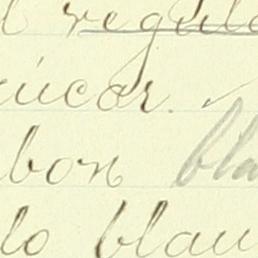 l regula
úcar.
bon bla
lo blau